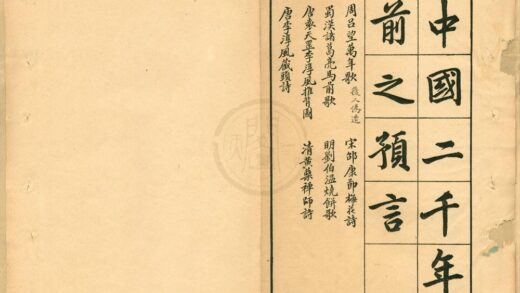 中國二千年
前之預言
周呂望萬年歌 後人偽造
宋邵康節梅花詩
蜀漢諸葛亮馬前歌
明劉伯溫燒餅歌
唐袁天罡李淳風推背圖
清黃蘗禪師詩
唐李淳風藏頭詩